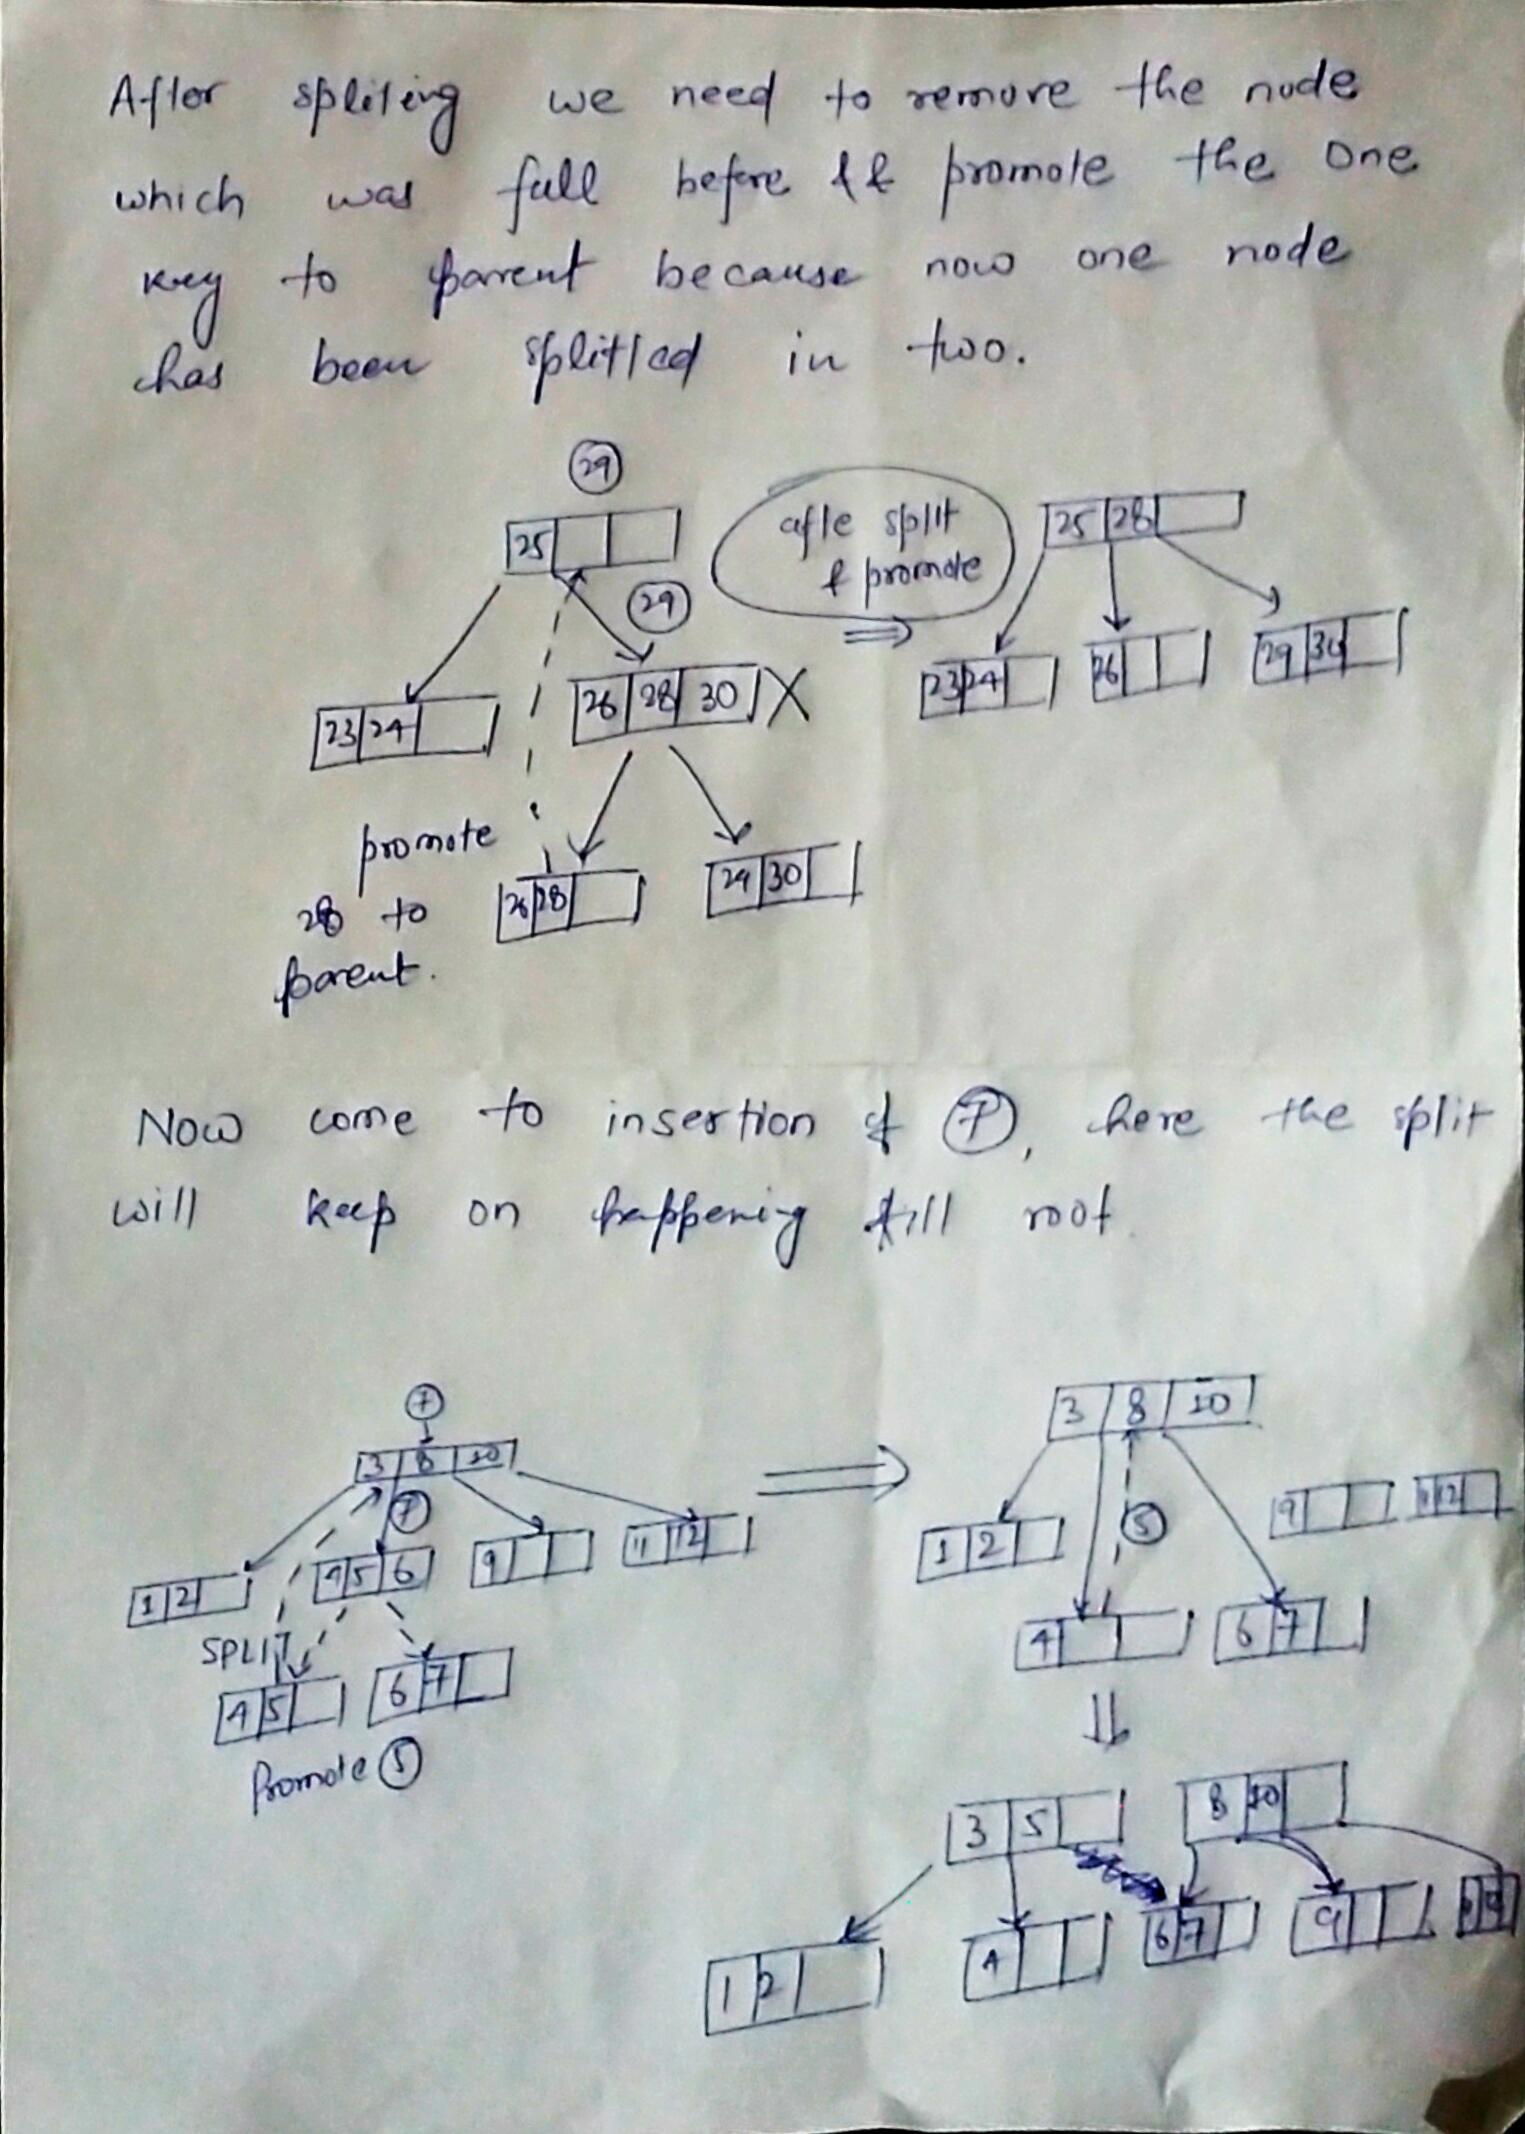 After spliting we need to remove the node
which was full before && promote the one
key to parent because now one node
has been splitted in two.
29
25
29
23 24
26 28 30 X
promote
28 to
parent.
26 28
29 30
afte split
& promote
⇒
25 28
23 24
26
29 30
Now come to insertion of 7, here the split
will keep on happening till root
7
3 8 10
7
1 2
4 5 6
9
11 12
SPLIT
4 5
6 7
Promote 5
⇒
3 8 10
1 2
5
9
11 12
4
6 7
⇓
3 5
8 10
1 2
4
6 7
9